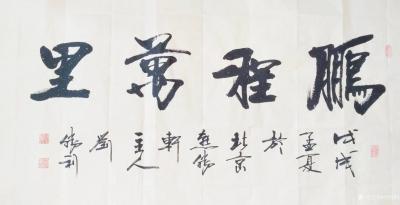 鵬程萬里
戊戌
孟夏
於
北京
軒
主人
劉
勝利